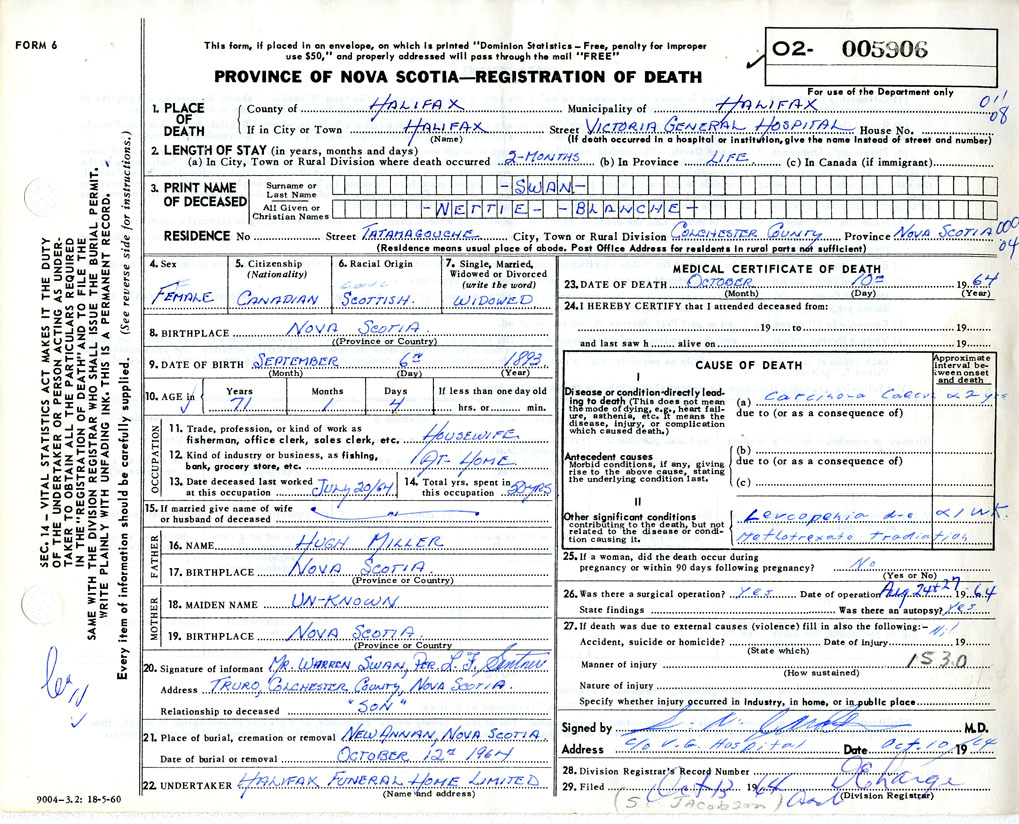 FORM 6
This form, if placed in an envelope, on which is printed "Dominion Statistics – Free, penalty for improper
use $50," and properly addressed will pass through the mail "FREE"
02- 005906
PROVINCE OF NOVA SCOTIA—REGISTRATION OF DEATH
For use of the Department only
011
08
1. PLACE OF DEATH
County of HALIFAX Municipality of HALIFAX
If in City or Town HALIFAX Street VICTORIA GENERAL HOSPITAL House No.
(Name) (If death occurred in a hospital or institution, give the name instead of street and number)
2. LENGTH OF STAY (in years, months and days)
(a) In City, Town or Rural Division where death occurred 2-MONTHS (b) In Province LIFE (c) In Canada (if immigrant)
3. PRINT NAME OF DECEASED
Surname or Last Name -SWAN-
All Given or Christian Names -NETTIE- -BLANCHE-
RESIDENCE No Street TATAMAGOUCHE City, Town or Rural Division COLCHESTER COUNTY Province NOVA SCOTIA 000
04
(Residence means usual place of abode. Post Office Address for residents in rural parts not sufficient)
4. Sex
FEMALE
5. Citizenship
(Nationality)
CANADIAN
6. Racial Origin
SCOTTISH.
7. Single, Married,
Widowed or Divorced
(write the word)
WIDOWED
8. BIRTHPLACE NOVA SCOTIA.
((Province or Country)
9. DATE OF BIRTH SEPTEMBER 6TH 1893
(Month) (Day) (Year)
10. AGE in
Years Months Days If less than one day old
71 1 4 hrs. or min.
OCCUPATION
11. Trade, profession, or kind of work as
fisherman, office clerk, sales clerk, etc. HOUSEWIFE
12. Kind of industry or business, as fishing,
bank, grocery store, etc. AT HOME.
13. Date deceased last worked
at this occupation JULY 20/64
14. Total yrs. spent in
this occupation 50YRS
15. If married give name of wife
or husband of deceased
FATHER
16. NAME HUGH MILLER
17. BIRTHPLACE NOVA SCOTIA
(Province or Country)
MOTHER
18. MAIDEN NAME UN-KNOWN
19. BIRTHPLACE NOVA SCOTIA.
(Province or Country
20. Signature of informant MR. WARREN SWAN, PER L. F.
Address TRURO, COLCHESTER COUNTY, NOVA SCOTIA.
Relationship to deceased "SON"
21. Place of burial, cremation or removal NEW ANNAN, NOVA SCOTIA.
Date of burial or removal OCTOBER 12TH 1964
22. UNDERTAKER HALIFAX FUNERAL HOME LIMITED
(Name and address)
MEDICAL CERTIFICATE OF DEATH
23. DATE OF DEATH OCTOBER 10TH 1964
(Month) (Day) (Year)
24. I HEREBY CERTIFY that I attended deceased from:
19 to 19
and last saw h alive on 19
CAUSE OF DEATH
Approximate
interval be-
tween onset
and death
I
Disease or condition directly lead-
ing to death (This does not mean
the mode of dying, e.g., heart fail-
ure, asthenia, etc. It means the
disease, injury, or complication
which caused death.)
(a) Carcinoma Caecum 2 yrs
due to (or as a consequence of)
Antecedent causes
Morbid conditions, if any, giving
rise to the above cause, stating
the underlying condition last.
(b)
due to (or as a consequence of)
(c)
II
Other significant conditions
contributing to the death, but not
related to the disease or condi-
tion causing it.
Leucopenia due 1 WK.
Methotrexate + radiation
25. If a woman, did the death occur during
pregnancy or within 90 days following pregnancy? No
(Yes or No)
26. Was there a surgical operation? Yes. Date of operation Aug 24+27 1964
State findings Was there an autopsy? Yes.
27. If death was due to external causes (violence) fill in also the following:- Nil
Accident, suicide or homicide? Date of injury 19
(State which)
1530
Manner of injury
(How sustained)
Nature of injury
Specify whether injury occurred in Industry, in home, or in public place
Signed by M.D.
Address c/o V.G. Hospital Date Oct. 10, 1964
28. Division Registrar's Record Number
29. Filed Oct 13 1964
(Division Registrar)
(S. JACOBSON)
SEC. 14 – VITAL STATISTICS ACT MAKES IT THE DUTY
OF THE UNDERTAKER OR PERSON ACTING AS UNDER-
TAKER TO OBTAIN ALL THE PARTICULARS REQUIRED
IN THE "REGISTRATION OF DEATH" AND TO FILE THE
SAME WITH THE DIVISION REGISTRAR WHO SHALL ISSUE THE BURIAL PERMIT.
WRITE PLAINLY WITH UNFADING INK. THIS IS A PERMANENT RECORD.
Every item of information should be carefully supplied. (See reverse side for instructions.)
9004-3.2: 18-5-60